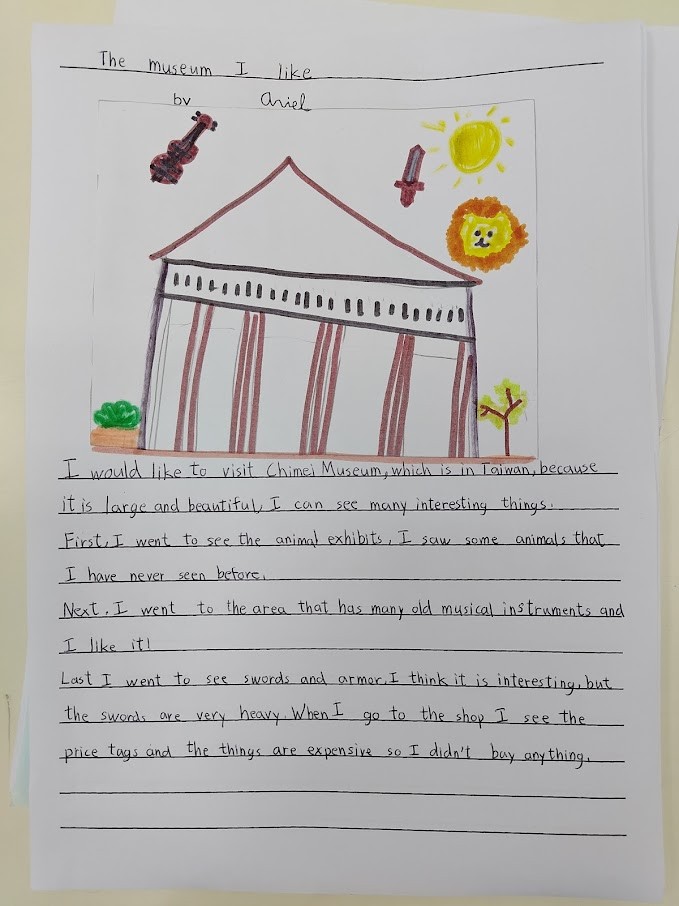 The museum I like
by Ariel
I would like to visit Chimei Museum, which is in Taiwan, because
it is large and beautiful, I can see many interesting things.
First, I went to see the animal exhibits, I saw some animals that
I have never seen before.
Next, I went to the area that has many old musical instruments and
I like it!
Last I went to see swords and armor, I think it is interesting, but
the swords are very heavy. When I go to the shop I see the
price tags and the things are expensive so I didn't buy anything.